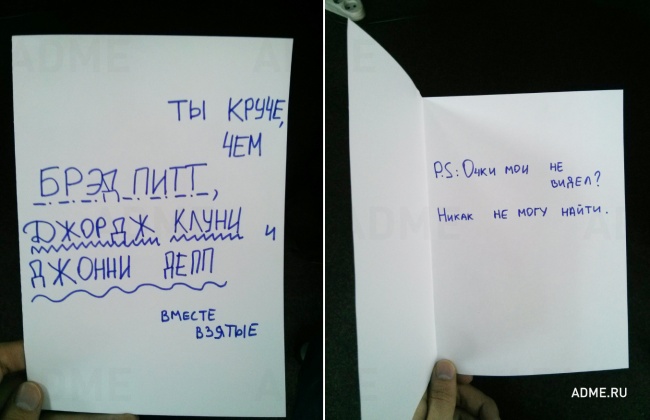 ТЫ КРУЧЕ,
ЧЕМ
БРЭД ПИТТ,
ДЖОРДЖ КЛУНИ и
ДЖОННИ ДЕПП
ВМЕСТЕ
ВЗЯТЫЕ
P.S: Очки мои не
видел?
Никак не могу найти.
ADME.RU